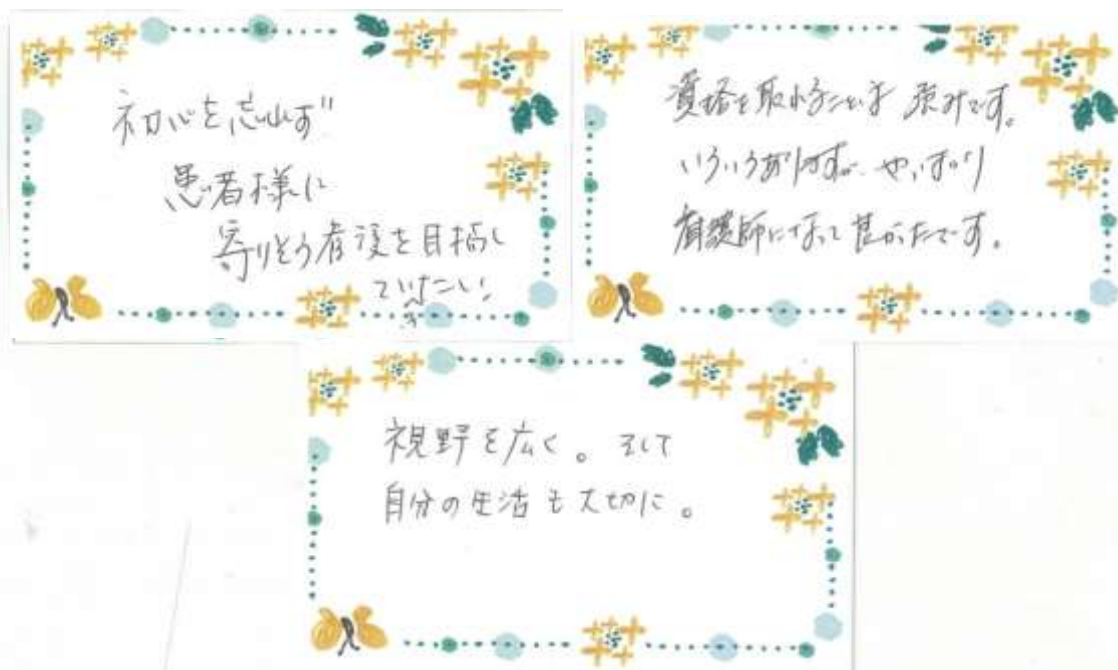 初心を忘れず
患者様に
寄りそう看護を目指し
ていきたい
資格を取れることは 強みです。
いろいろありますが、やっぱり
看護師になって良かったです。
視野を広く。そして
自分の生活も大切に。